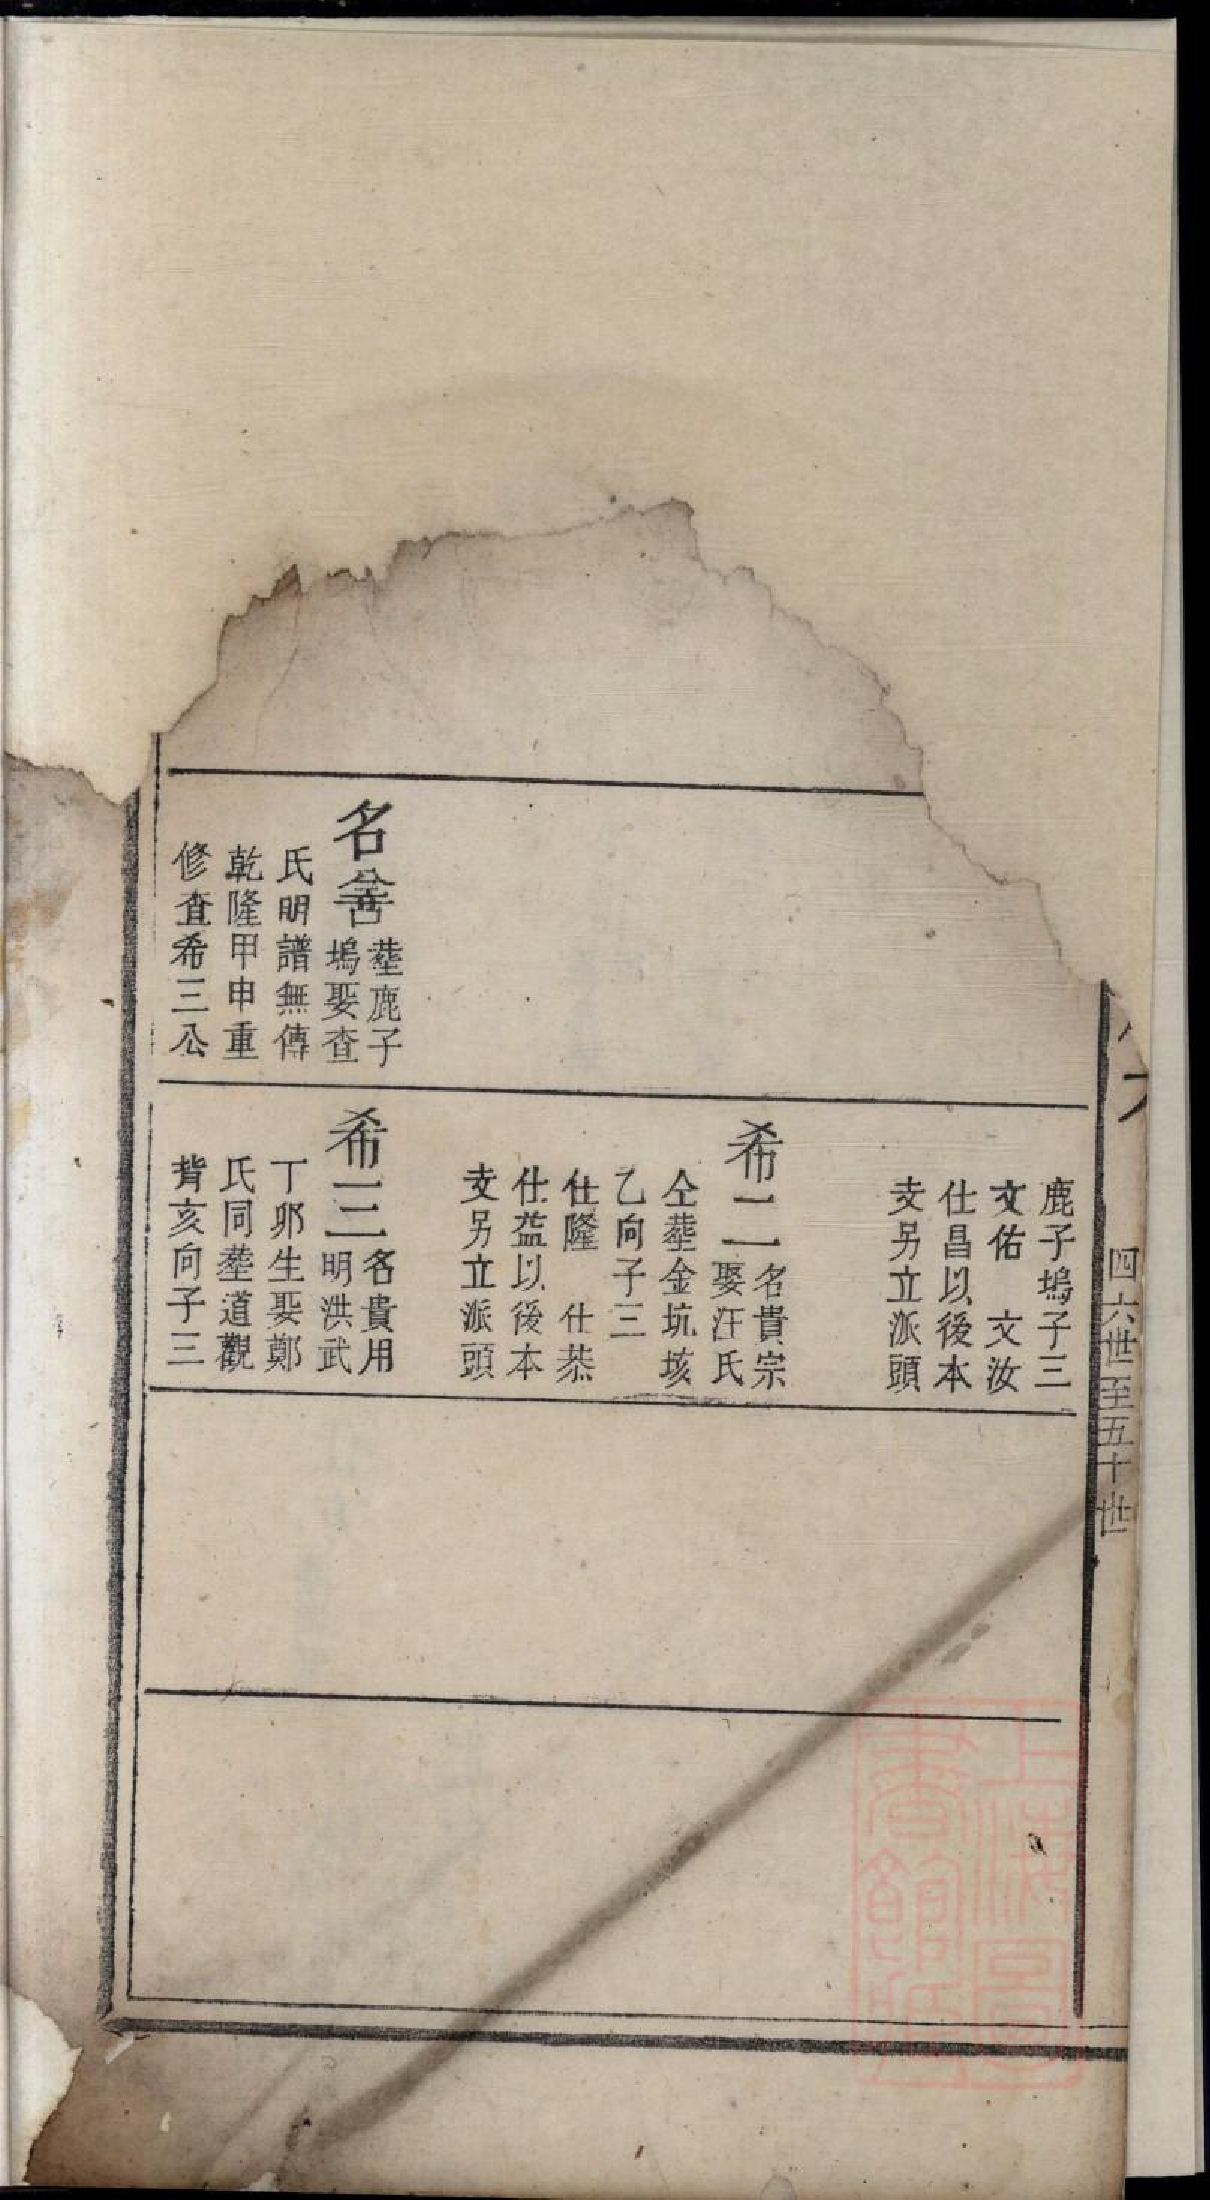 四六世至五十世
名善
塟鹿子
塢娶查
氏明譜無傳
乾隆甲申重
修查希三公
鹿子塢子三
文佑　文汝
仕昌以後本
支另立派頭
希二
名貴宗
娶汪氏
仝塟金坑垓
乙向子三
仕隆　仕恭
仕益以後本
支另立派頭
希三
名貴用
明洪武
丁卯生娶鄭
氏同塟道觀
背亥向子三
上海圖
書館藏